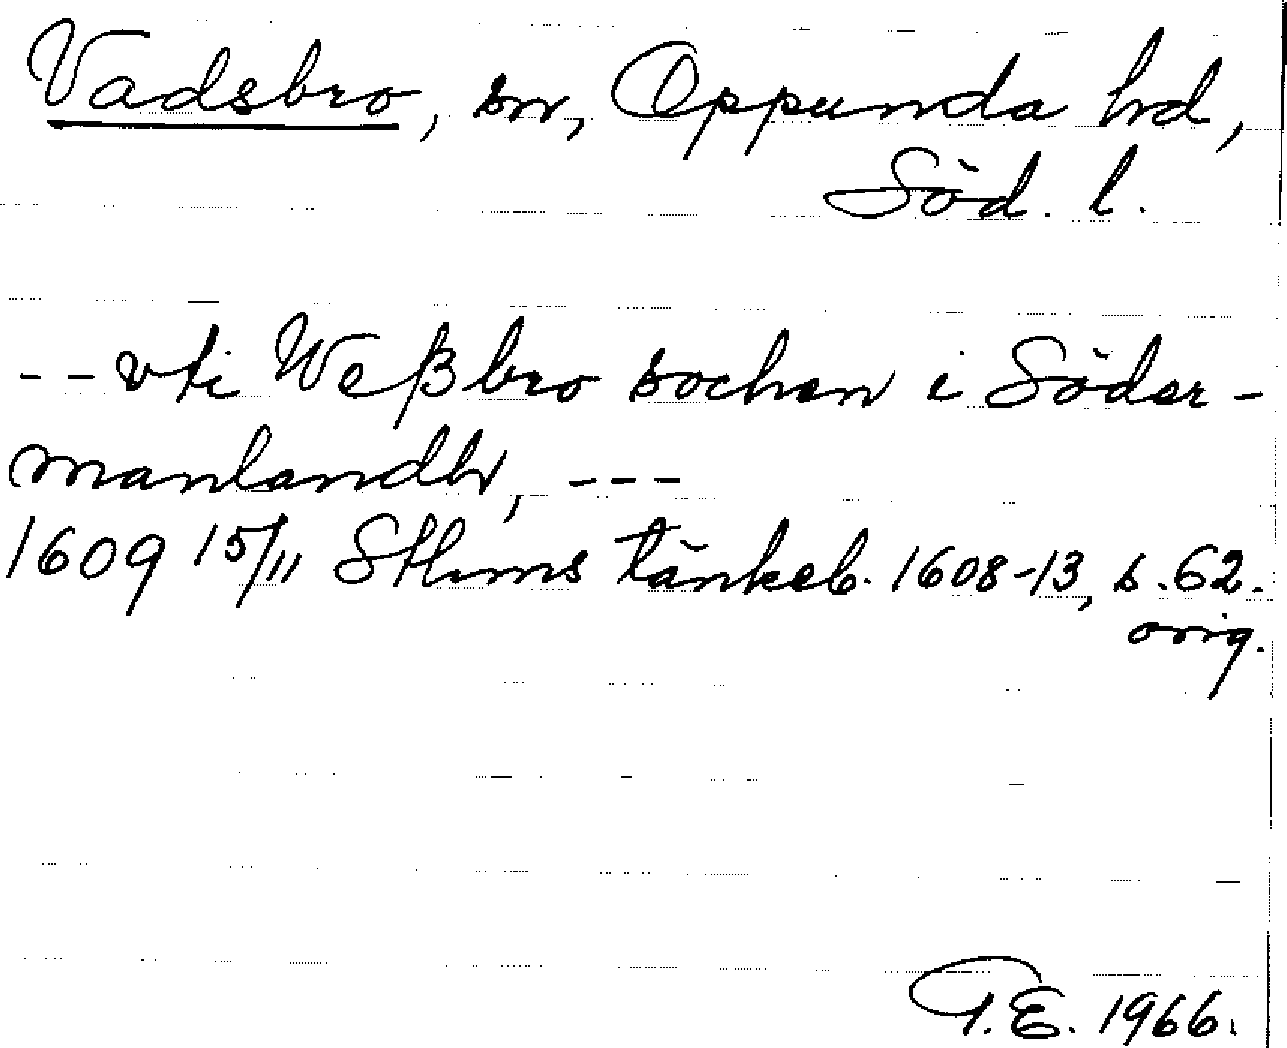 Vadsbro, sn, Oppunda hd,
Söd. l.
- - vti Weßbro sochen i Söder-
manlandh, ---
1609 15/11 Sthms tänkeb. 1608-13, s. 62.
orig.
T.E. 1966.